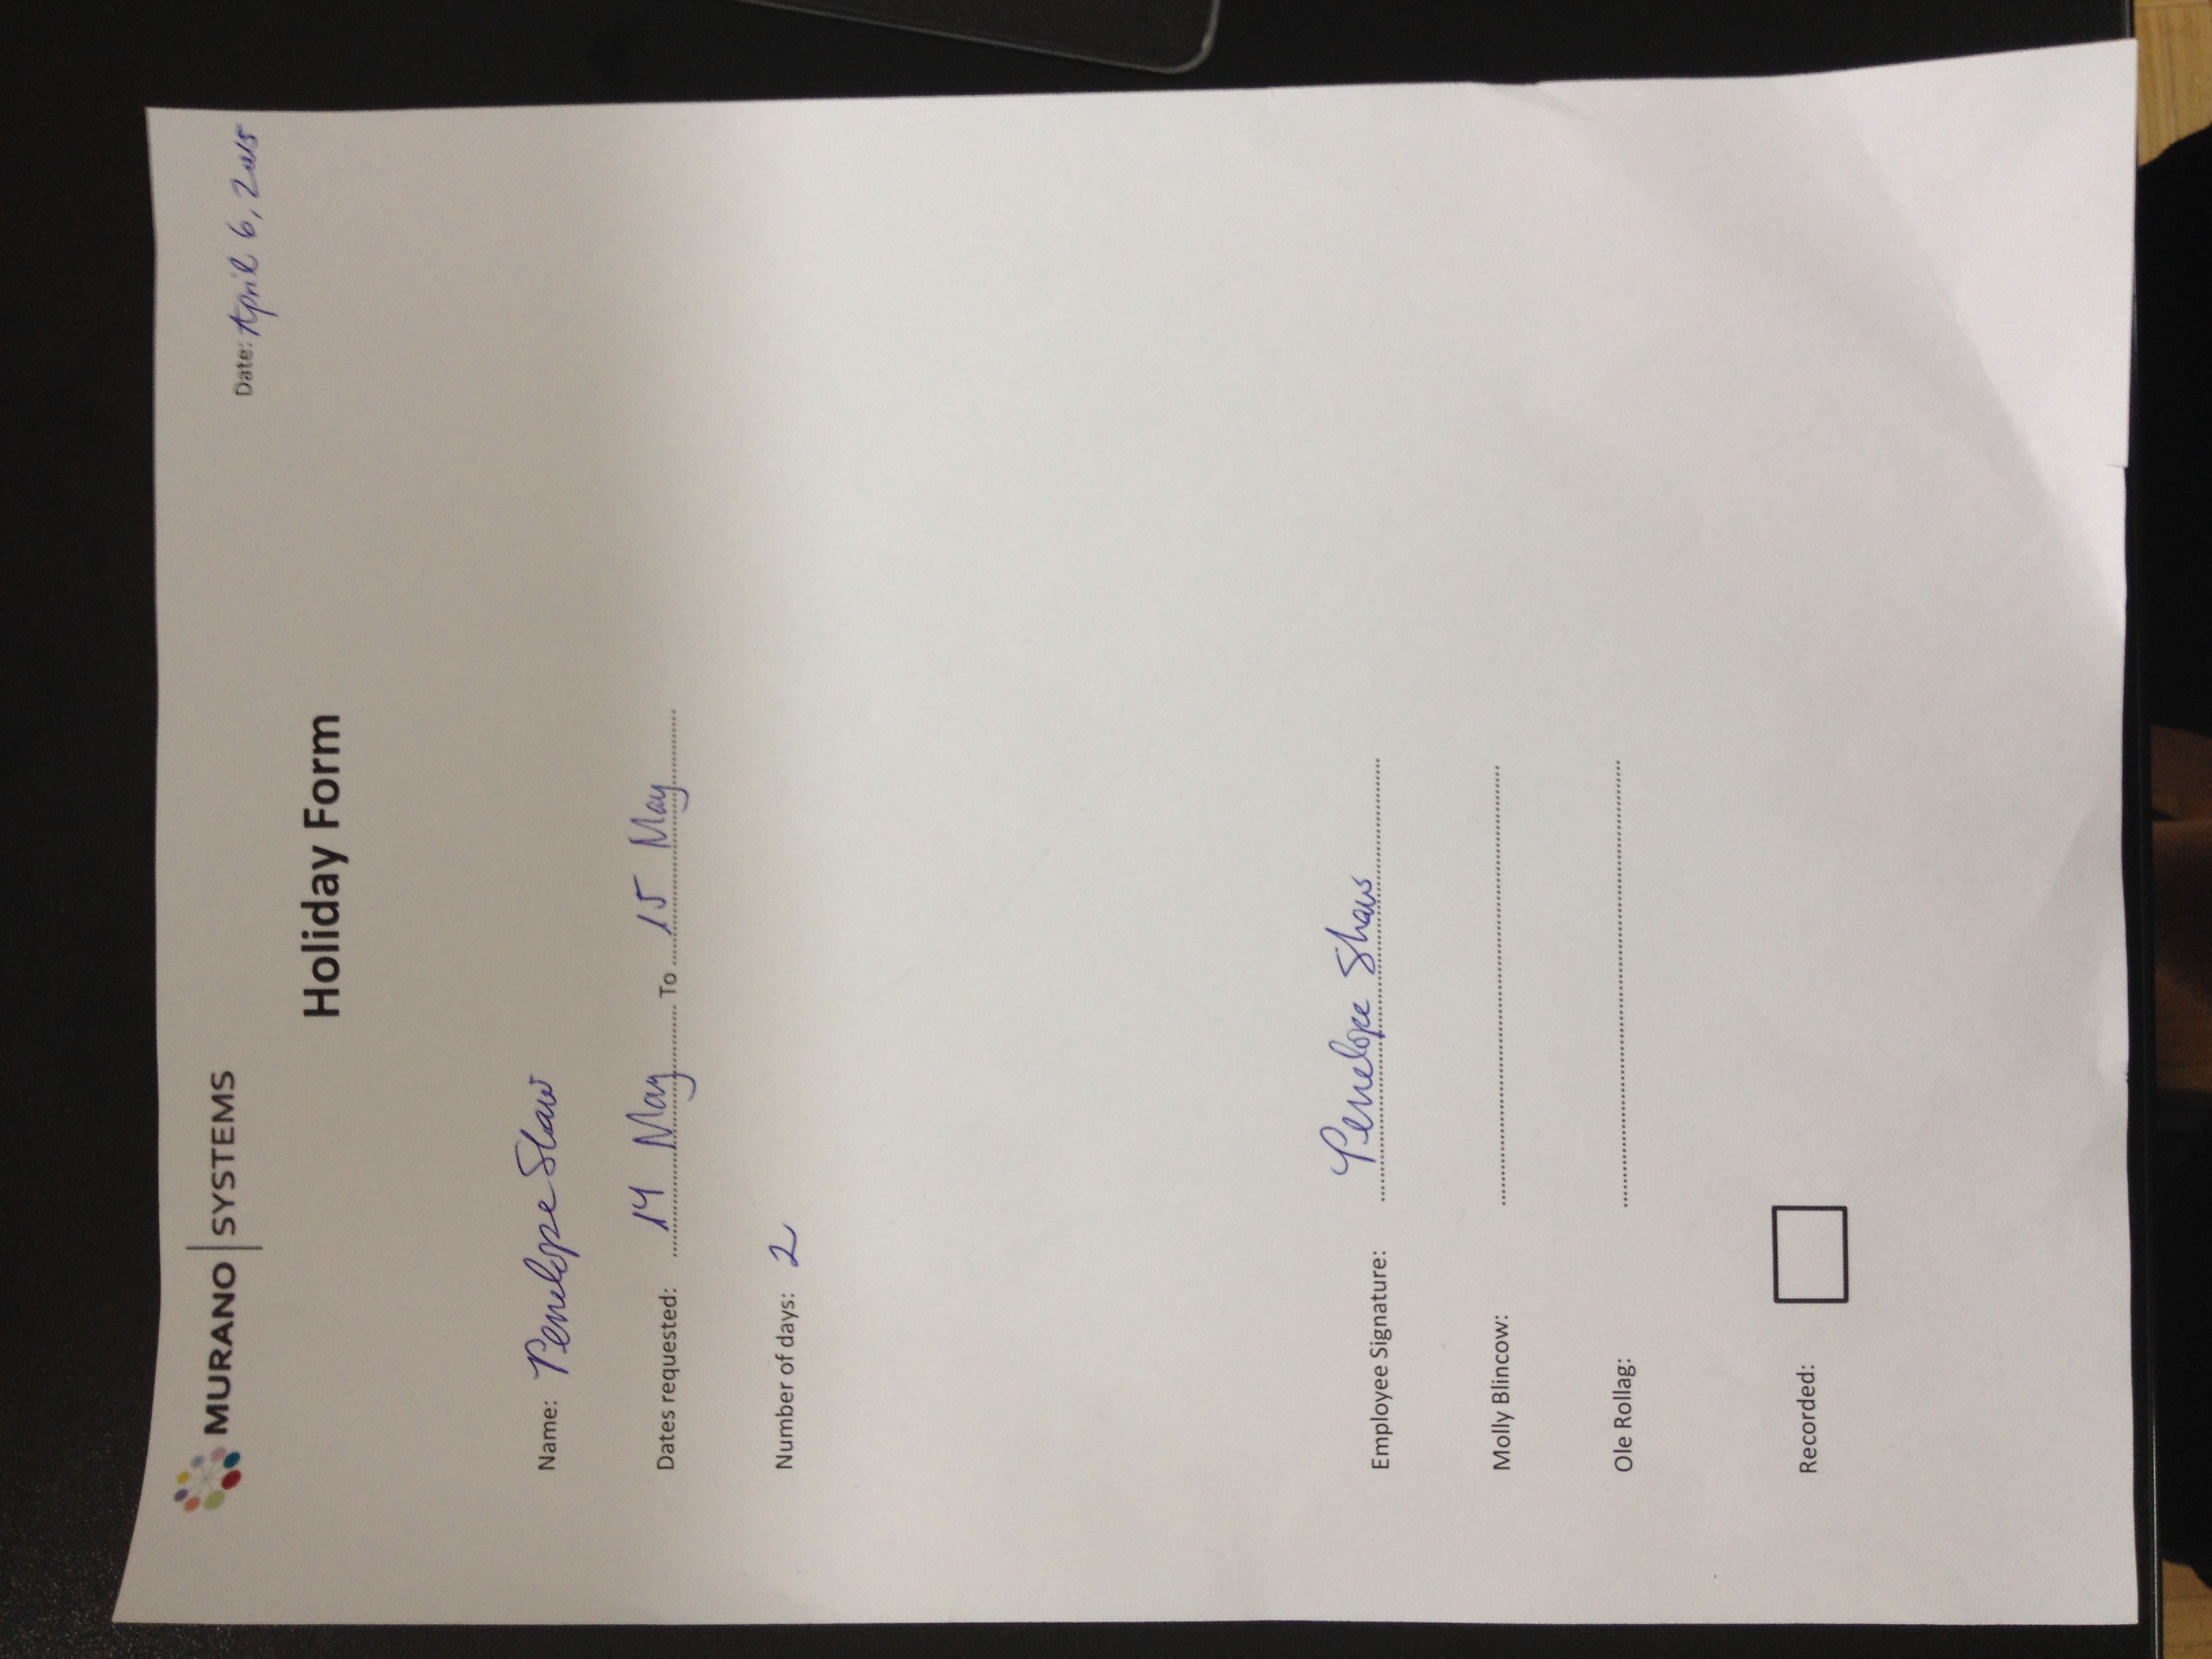 MURANO | SYSTEMS
Date: April 6, 2015
Holiday Form
Name: Penelope Shaw
Dates requested: 14 May To 15 May
Number of days: 2
Employee Signature: Penelope Shaw
Molly Blincow:
Ole Rollag:
Recorded: